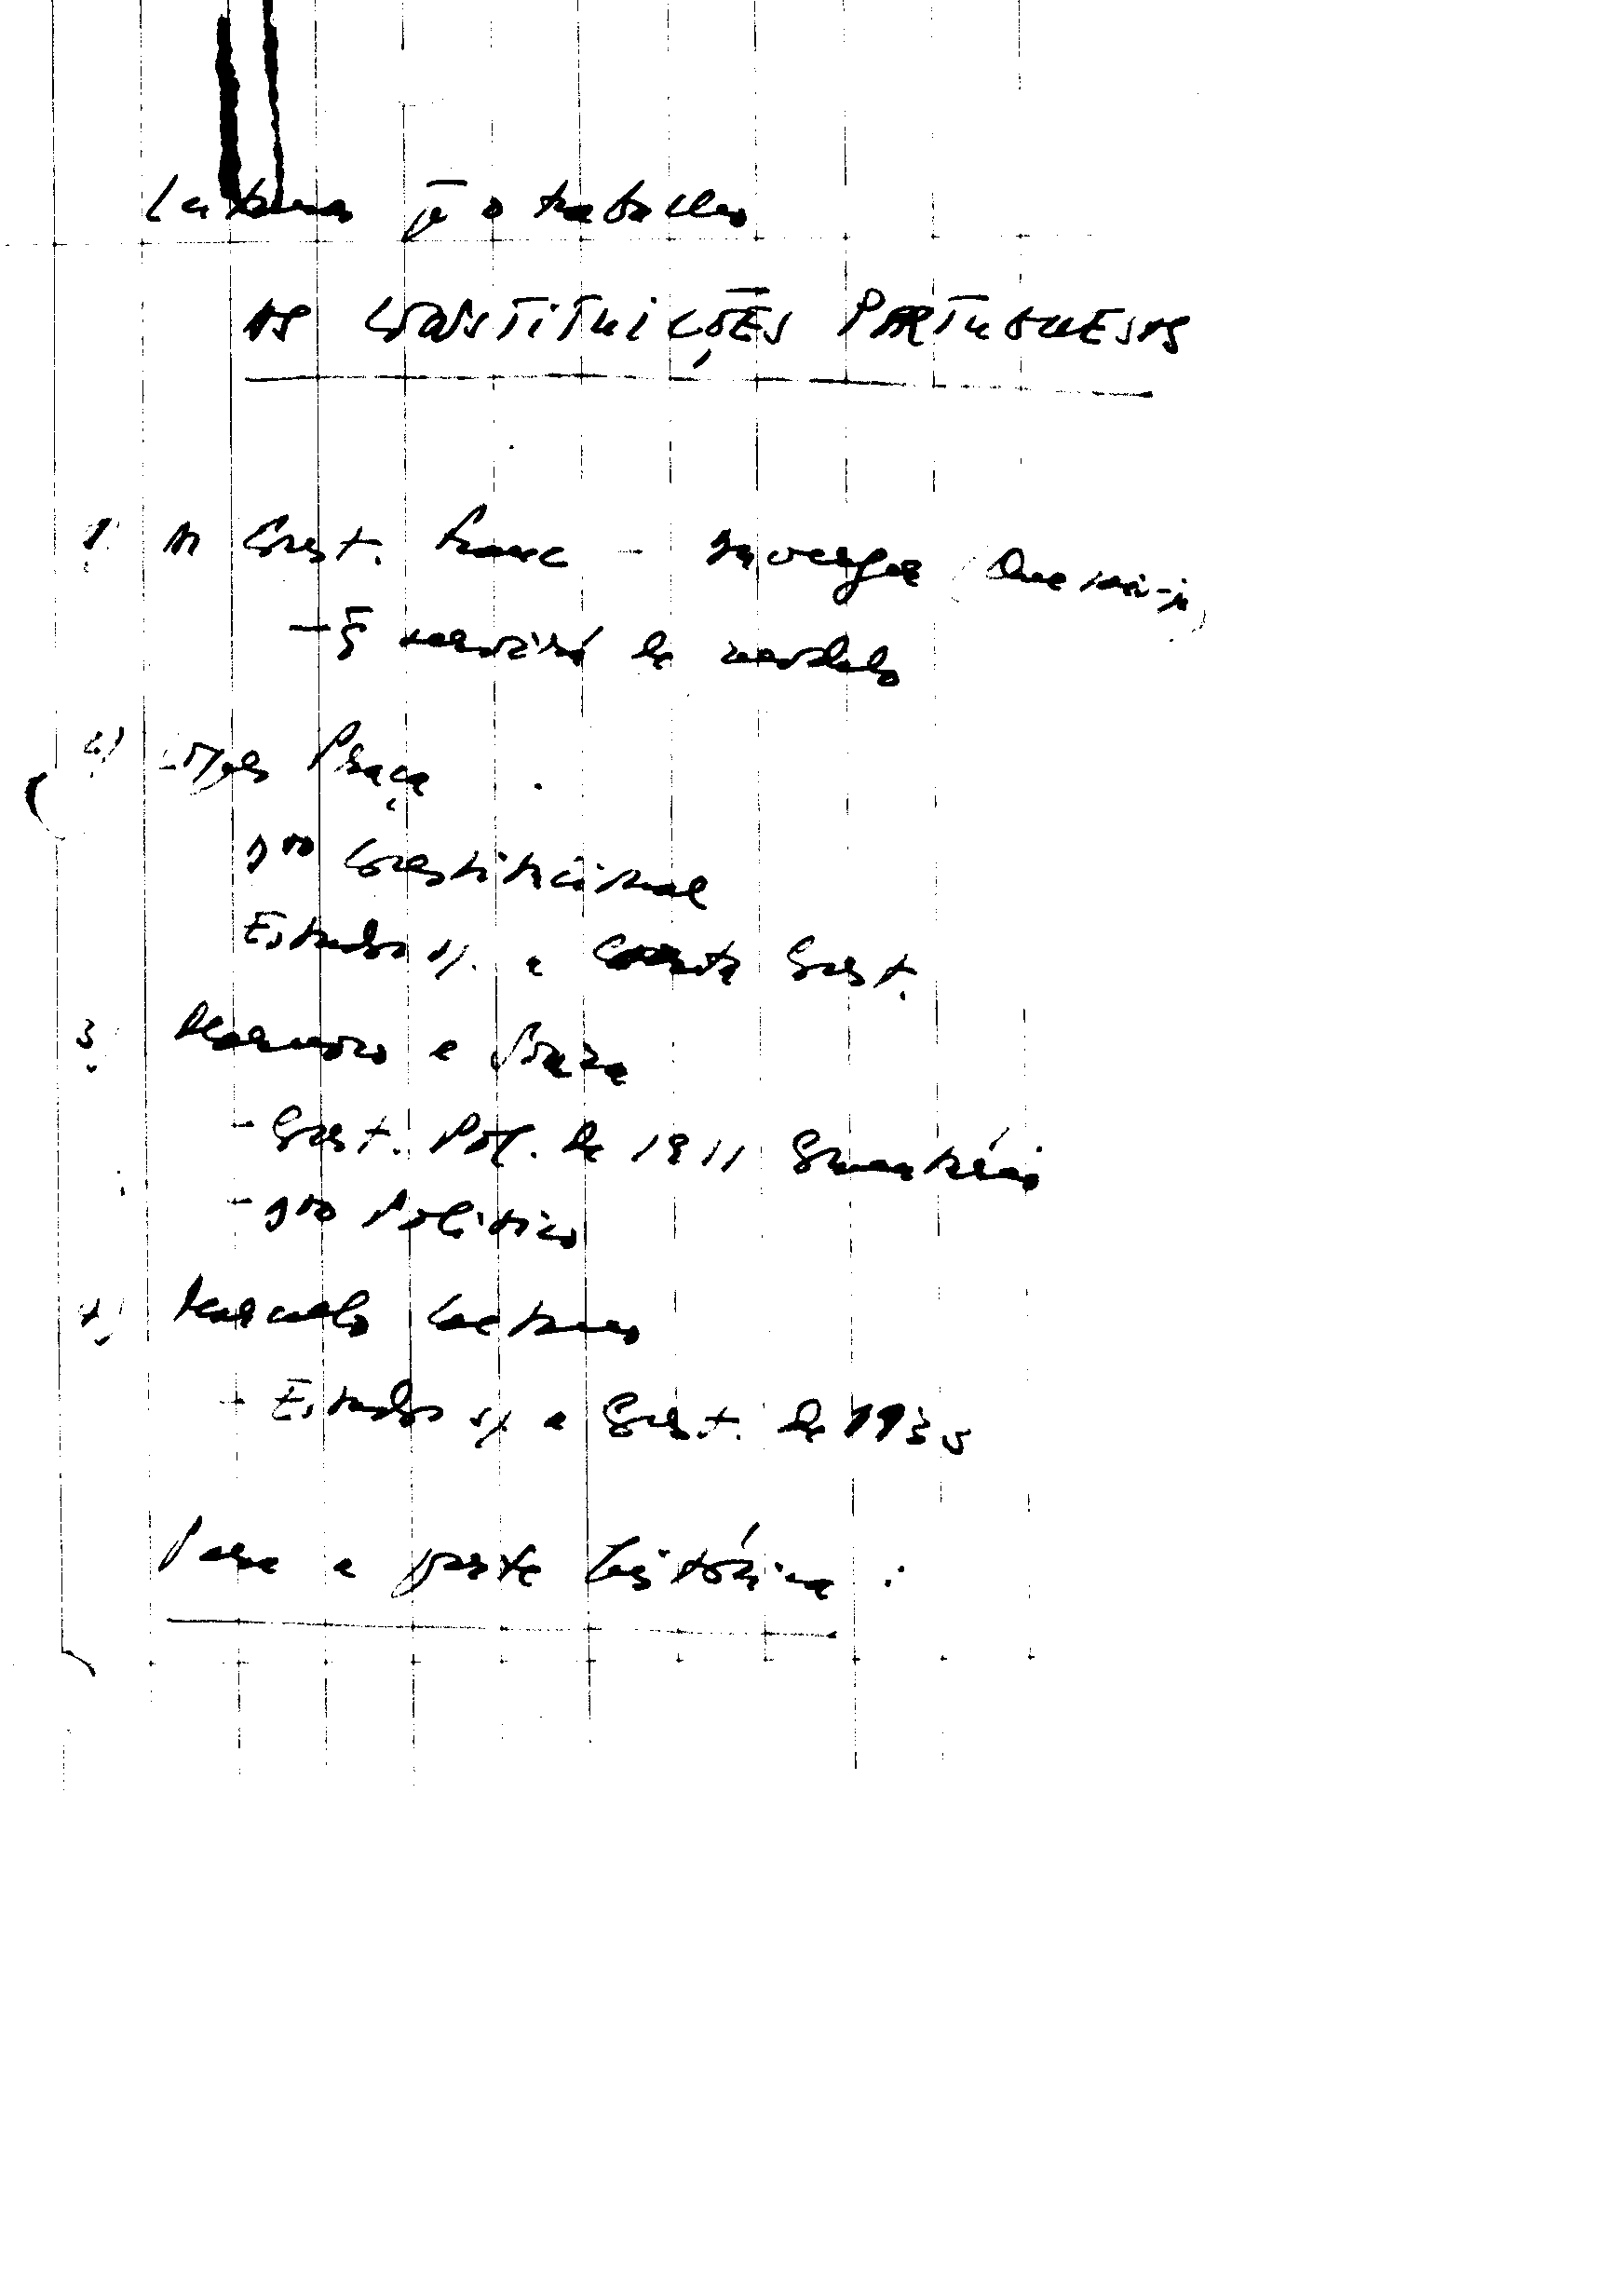 Leituras pª o trabalho
AS CONSTITUIÇÕES PORTUGUESAS
1) A Const. franc - Duverger (Que sais-je)
- q̄ servirá de modelo
2) Lopes Praça
Dto Constitucional
Estudos s/. a Carta Const.
3) Marnoco e Souza
- Const. Pol. de 1911 Comentário
- Dto Politico
4) Marcelo Caetano
- Estudos s/ a Const. de 1933
Para a parte histórica :